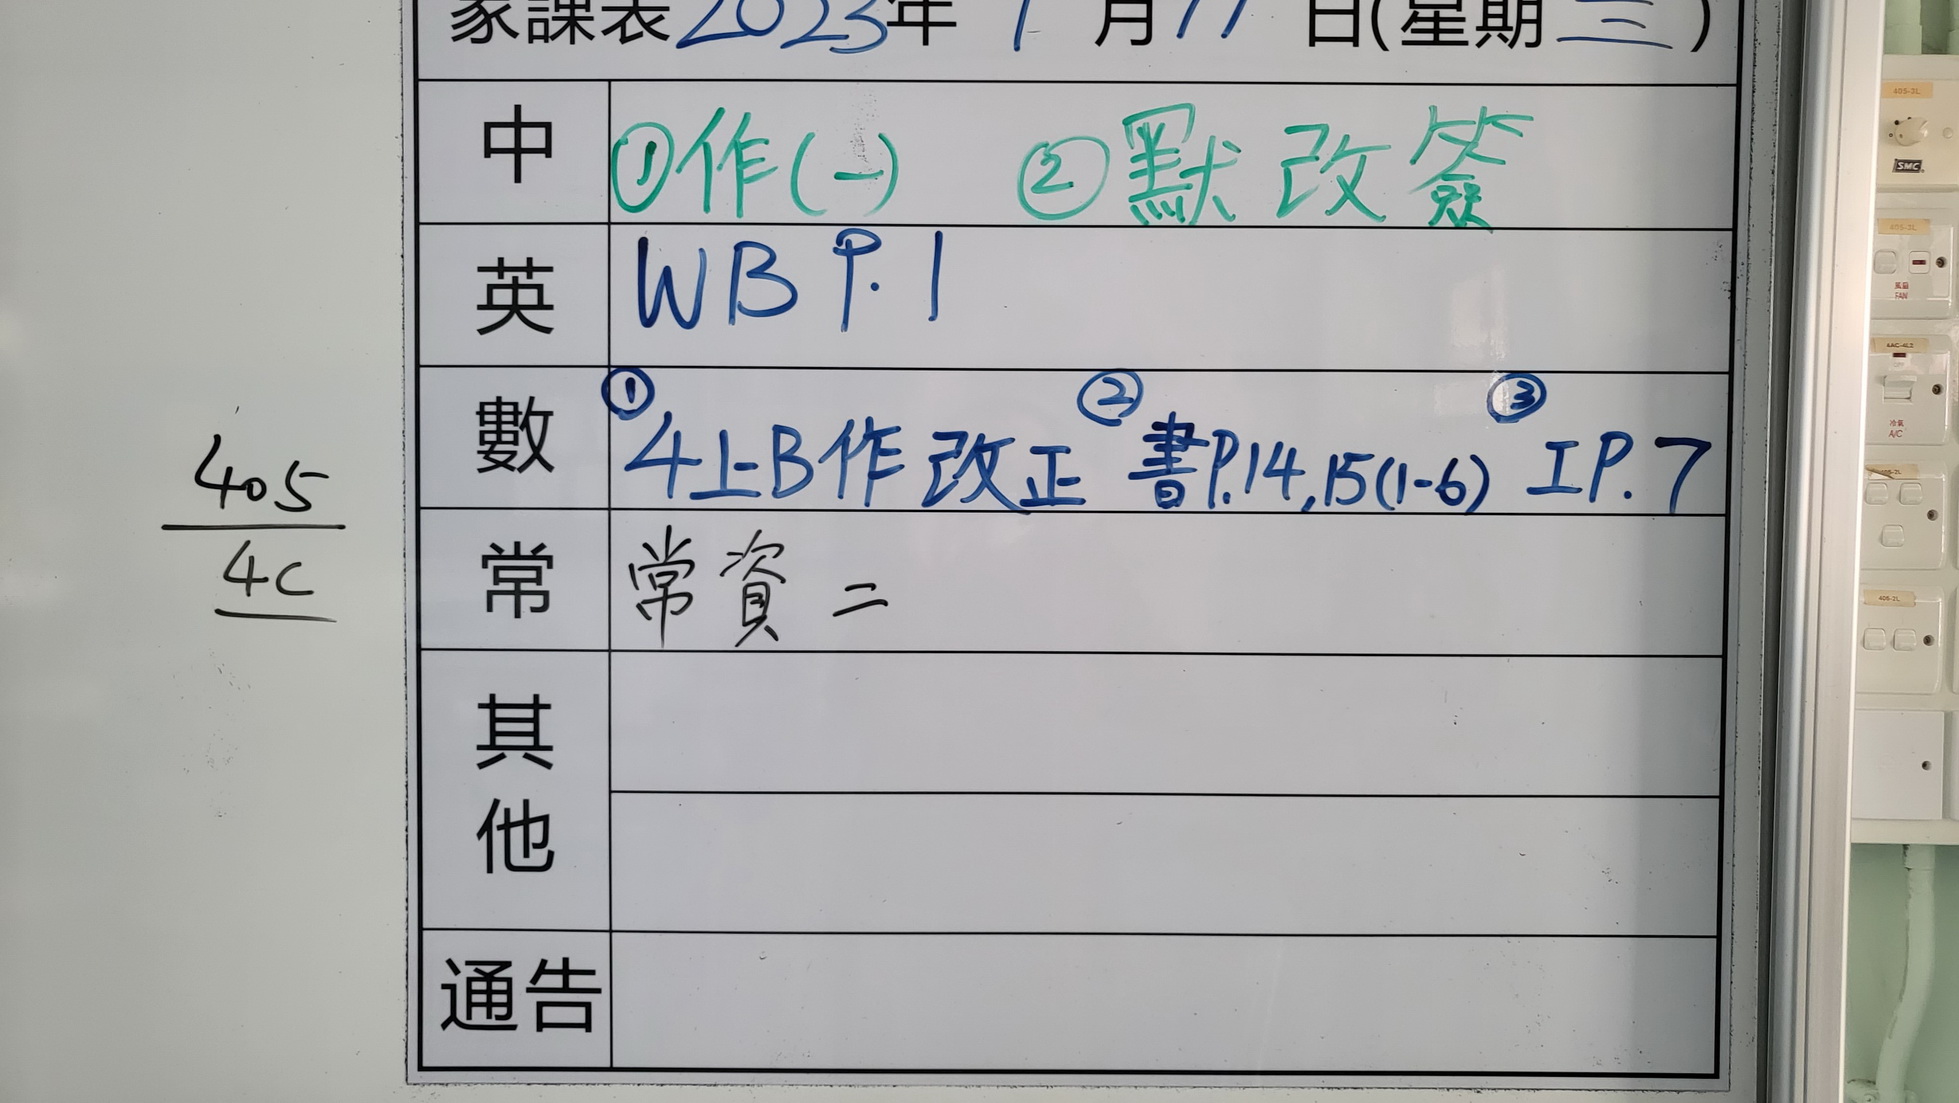 家課表2023年 1 月11 日(星期三)
中 ①作(一) ②默改簽
英 WB P.1
數 ①4上B作改正 ②書P.14,15(1-6) ③工P.7
常 常資二
其他
通告
405
4C
405-3L
SMC
405-3L
風扇
FAN
4AC-4L2
冷氣
A/C
405-2L